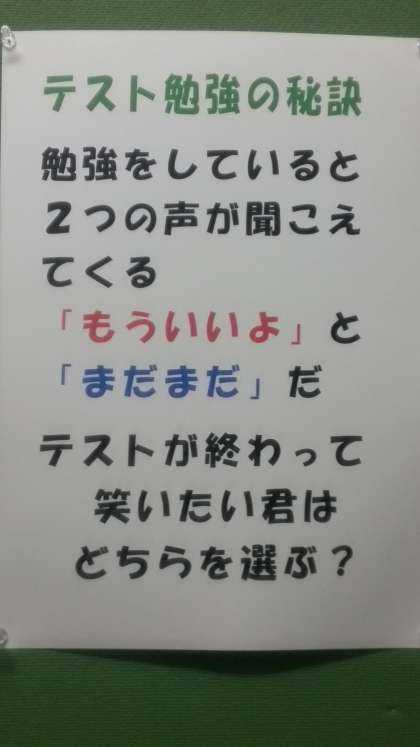 テスト勉強の秘訣
勉強をしていると
２つの声が聞こえ
てくる
「もういいよ」と
「まだまだ」だ
テストが終わって
笑いたい君は
どちらを選ぶ？